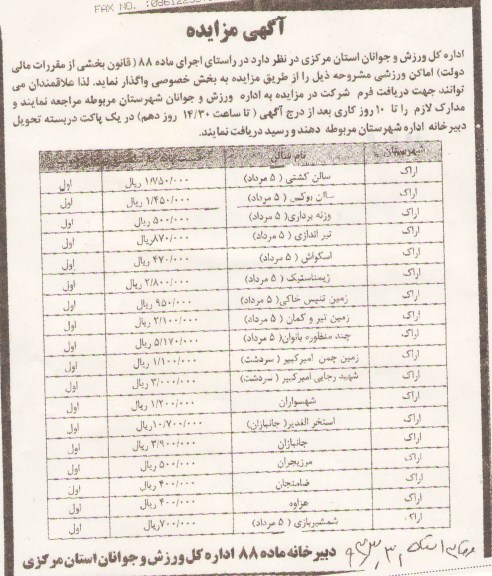 FAX NO. :
آگهی مزایده
اداره کل ورزش و جوانان استان مرکزی در نظر دارد در راستای اجرای ماده ۸۸ ( قانون بخشی از مقررات مالی
دولت) اماکن ورزشی مشروحه ذیل را از طریق مزایده به بخش خصوصی واگذار نماید. لذا علاقمندان می
توانند جهت دریافت فرم شرکت در مزایده به اداره ورزش و جوانان شهرستان مربوطه مراجعه نمایند و
مدارک لازم را تا ۱۰ روز کاری بعد از درج آگهی ( تا ساعت ۱۴/۳۰ روز دهم) در یک پاکت دربسته تحویل
دبیرخانه اداره شهرستان مربوطه دهند و رسید دریافت نمایند.
شهرستان نام سالن
اراک سالن کشتی ( ۵ مرداد) ۱/۷۵۰/۰۰۰ ریال اول
اراک سالن بوکس ( ۵ مرداد) ۱/۴۵۰/۰۰۰ ریال اول
اراک وزنه برداری( ۵ مرداد) ۵۰۰/۰۰۰ ریال اول
اراک تیر اندازی ( ۵ مرداد) ۸۷۰/۰۰۰ریال اول
اراک اسکواش ( ۵ مرداد) ۴۷۰/۰۰۰ ریال اول
اراک ژیمناستیک ( ۵ مرداد) ۲/۸۰۰/۰۰۰ ریال اول
اراک زمین تنیس خاکی( ۵ مرداد) ۹۵۰/۰۰۰ ریال اول
اراک زمین تیر و کمان ( ۵ مرداد) ۲/۱۰۰/۰۰۰ ریال اول
اراک چند منظوره بانوان( ۵ مرداد) ۵/۱۷۰/۰۰۰ ریال اول
اراک زمین چمن امیرکبیر ( سردشت) ۱/۱۰۰/۰۰۰ ریال اول
اراک شهید رجایی امیرکبیر ( سردشت) ۳/۰۰۰/۰۰۰ ریال اول
اراک شهسواران ۱/۲۰۰/۰۰۰ ریال اول
اراک استخر الغدیر( جانبازان) ۱۰/۷۰۰/۰۰۰ریال اول
اراک جانبازان ۳/۹۰۰/۰۰۰ ریال اول
اراک مرزیجران ۵۰۰/۰۰۰ ریال اول
اراک ضامنجان ۴۰۰/۰۰۰ ریال اول
اراک هزاوه ۴۰۰/۰۰۰ ریال اول
اراک شمشیربازی ( ۵ مرداد) ۷۰۰/۰۰۰ریال اول
دبیرخانه ماده ۸۸ اداره کل ورزش و جوانان استان مرکزی